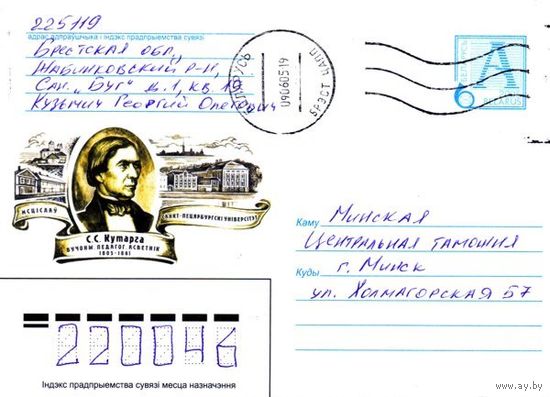 225119
адрас адпраўшчыка і індэкс прадпрыемства сувязі
Брестская обл,
Жабинковский р-н,
Сан. „Буг" д.1, кв. 19
Кузьмич Георгий Олегович
БЕЛАРУСЬ
090605-19
БРЭСТ
ПОШТА
А
BELARUS
МСЦІСЛАЎ
САНКТ-ПЕЦЯРБУРГСКІ УНІВЕРСІТЭТ
С.С. Кутарга
ВУЧОНЫ ПЕДАГОГ АСВЕТНІК
1805-1861
Каму Минская
Центральная таможня
Куды г. Минск
ул. Холмагорская 57
220046
Індэкс прадпрыемства сувязі месца назначэння
www.ay.by